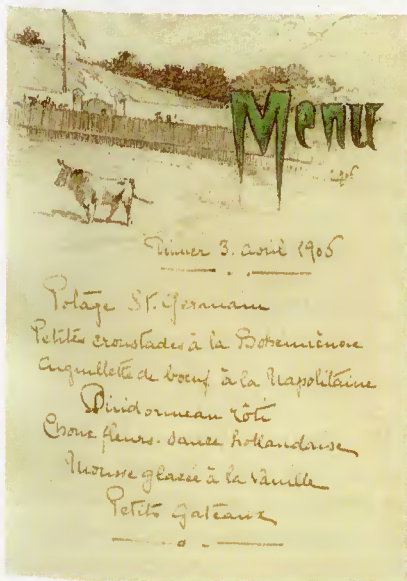 Menu
Dinner 3. avril 1905
Potage St. Germain
Petites croustades à la Bohemiènne
Aiguillette de boeuf à la Napolitaine
Dindonneau rôti
Choux fleurs. sauce hollandaise
Mousse glacée à la Vanille
Petits gateaux